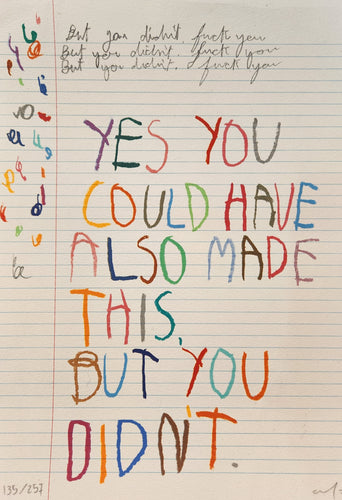 But you didn't. fuck you
But you didn't. fuck you
but you didn't. fuck you
YES YOU
COULD HAVE
ALSO MADE
THIS,
BUT YOU
DIDN'T.
135/257